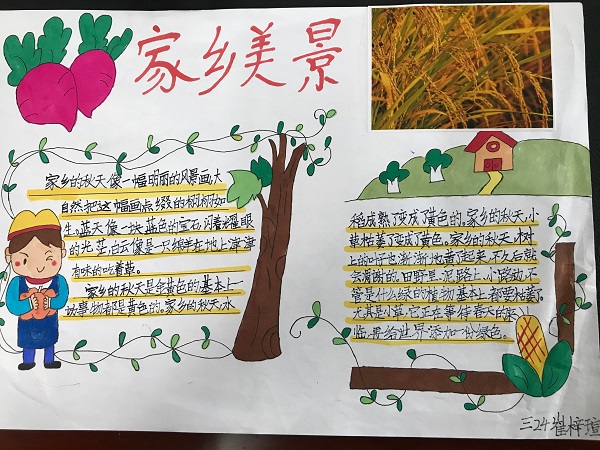 家乡美景
家乡的秋天像一幅明丽的风景画,大
自然把这幅画点缀的栩栩如
生。蓝天像一块蓝色的宝石,闪着耀眼
的光芒,白云像是只绵羊在地上津津
有味的吃着草。
家乡的秋天是金黄色的,基本上
事物都是黄色的。家乡的秋天,水
稻成熟了变成了黄色的。家乡的秋天,小
草枯萎了变成了黄色。家乡的秋天,树
上的叶子也渐渐地黄了起来,不久后就
会凋谢的。田野里、泥路上、小路边,不
管是什么绿的植物,基本上都要枯萎了。
尤其是小草,它正在等待春天的
临,再给世界添加一份绿色。
三24崔梓瑄